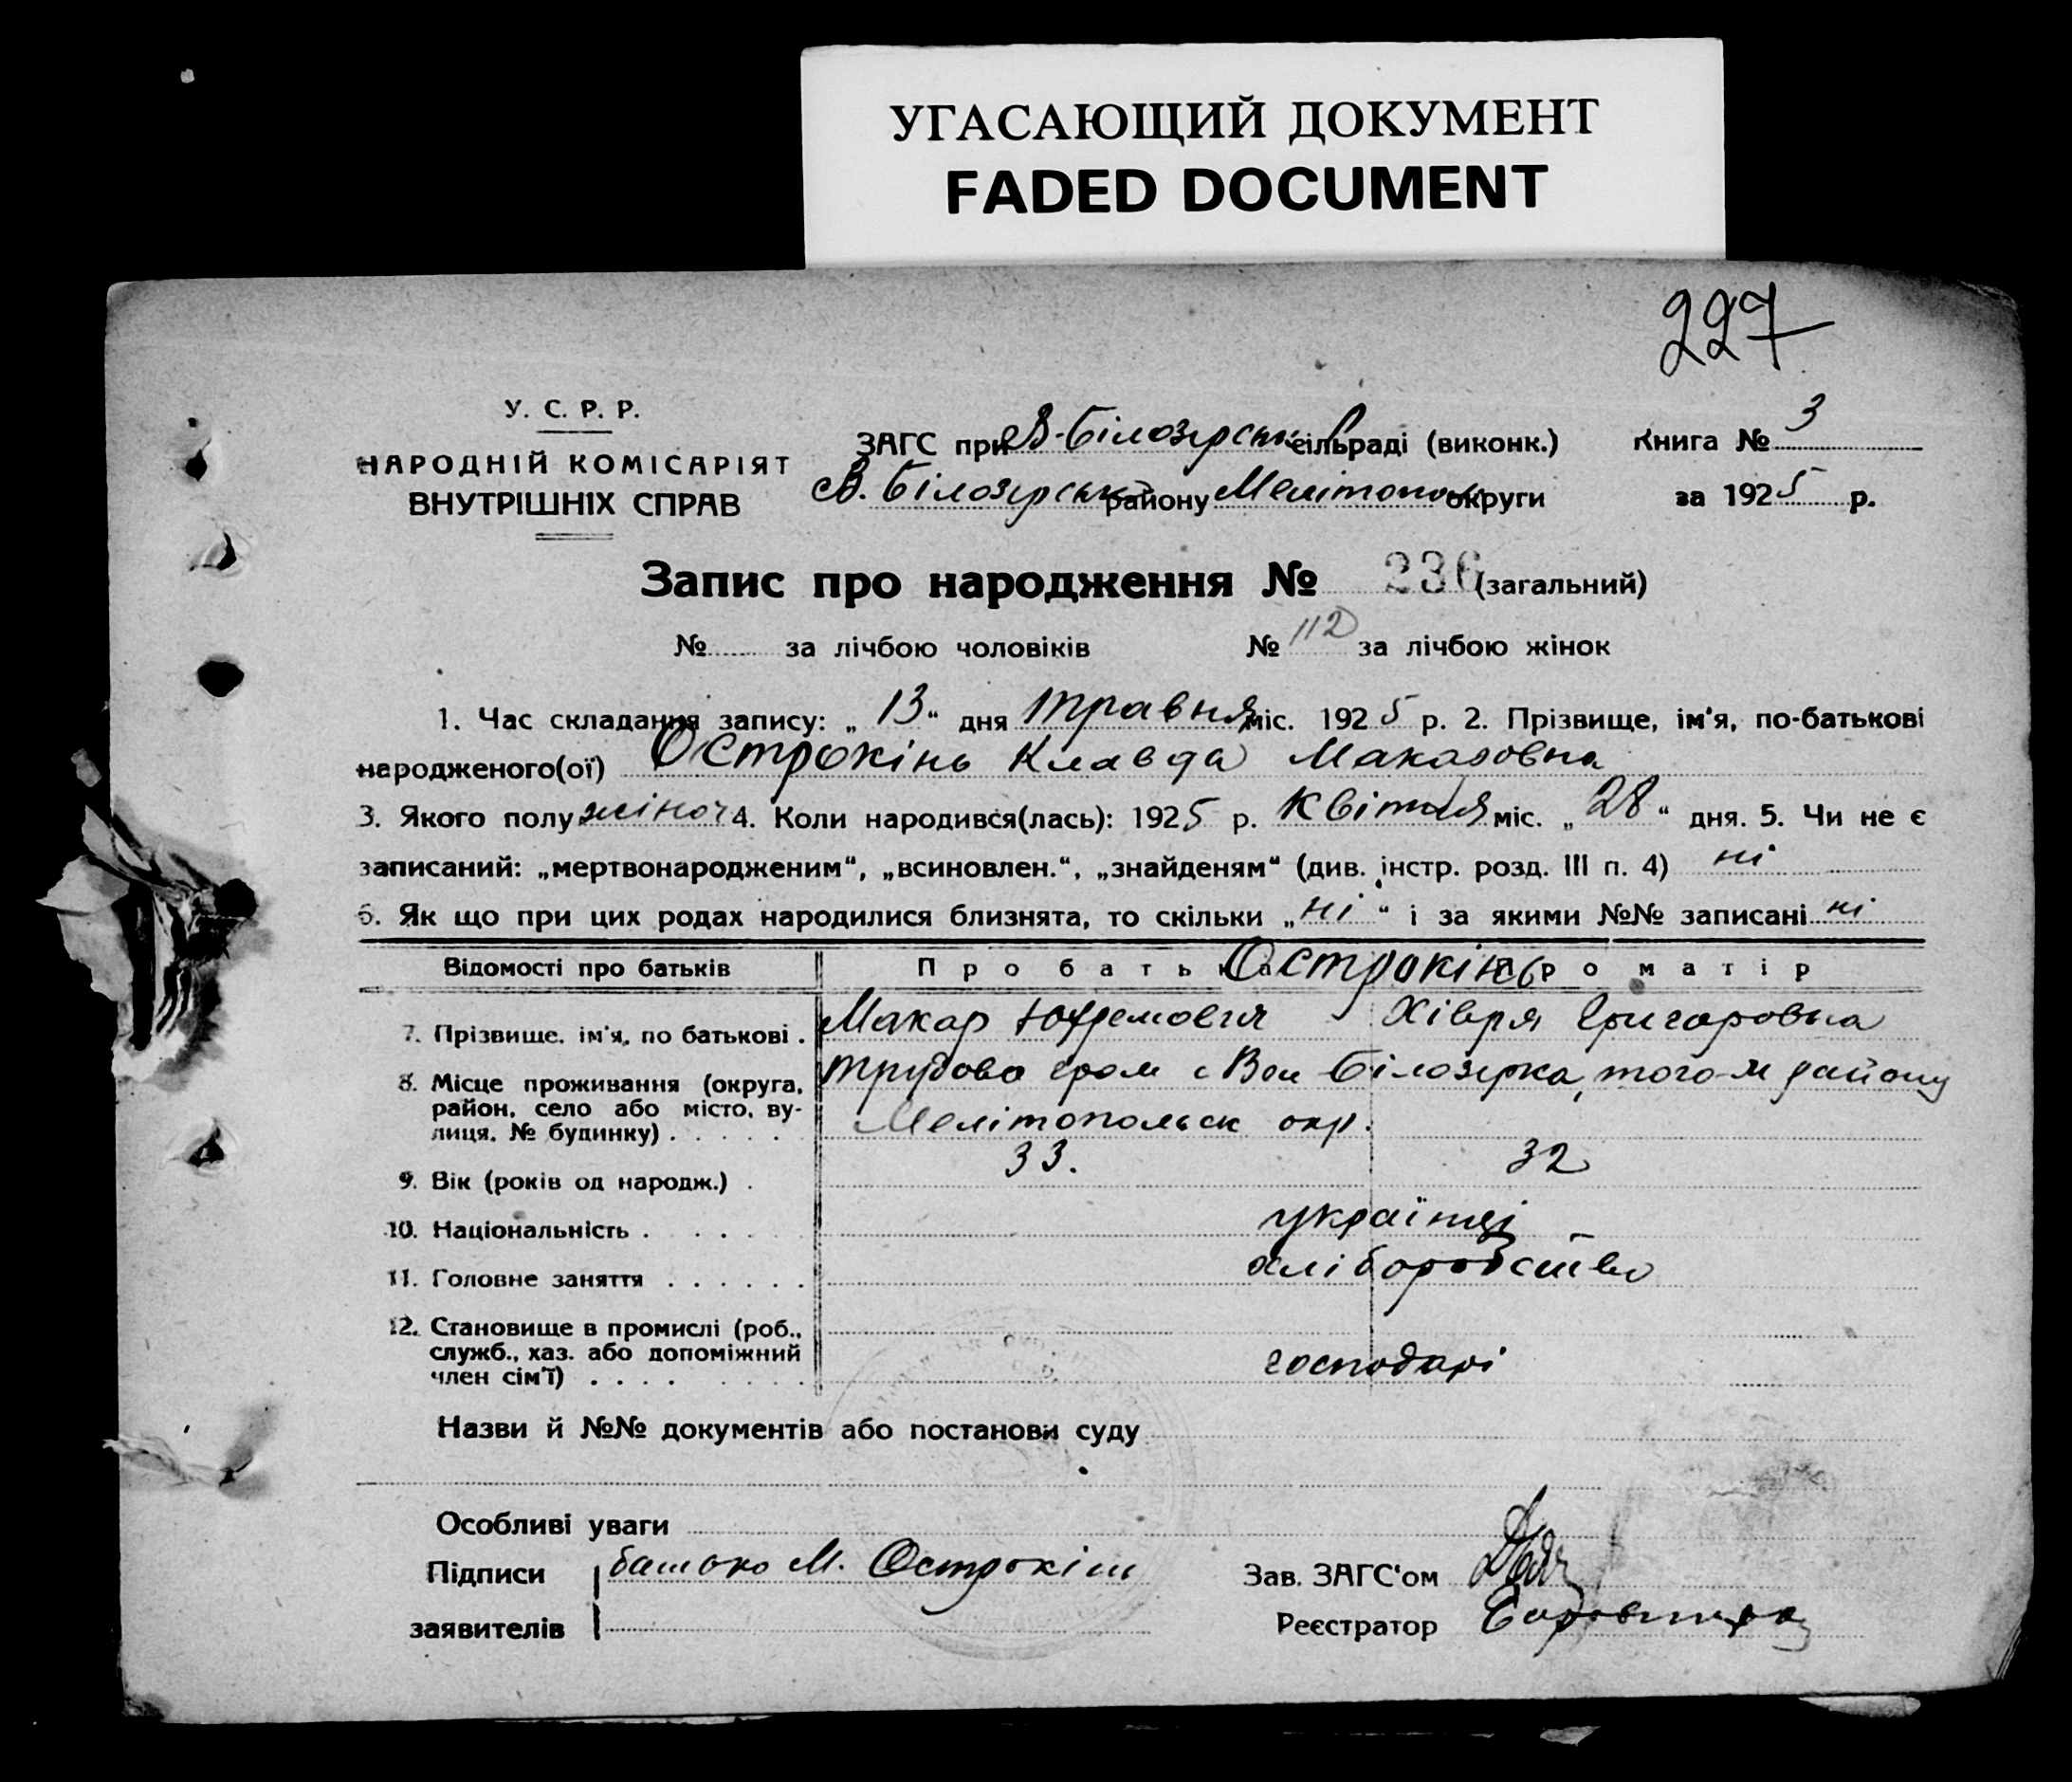 УГАСАЮЩИЙ ДОКУМЕНТ
FADED DOCUMENT
227
У. С. Р. Р.
НАРОДНІЙ КОМІСАРІЯТ
ВНУТРІШНІХ СПРАВ
ЗАГС при В-Білозерськ сільраді (виконк.) Книга № 3
В. Білозерськ району Мелітополь округи за 1925 р.
Запис про народження № 236 (загальний)
№ за лічбою чоловіків № 112 за лічбою жінок
1. Час складання запису: „13“ дня травня міс. 1925 р. 2. Прізвище, ім'я, по-батькові
народженого(ої) Острокінь Клавда Макаровна
3. Якого полу жіноч 4. Коли народився(лась): 1925 р. Квітня міс. „28“ дня. 5. Чи не є
записаний: „мертвонародженим“, „всиновлен.“, „знайденям“ (див. інстр. розд. III п. 4) ні
6. Як що при цих родах народилися близнята, то скільки „ні“ і за якими №№ записані ні
Відомості про батьків Про батька Острокінь Про матір
7. Прізвище, ім'я, по батькові . Макар Юхремович Хівря Григоровна
8. Місце проживання (округа, район, село або місто, вулиця, № будинку) . . . . . трудова гром с Вел Білозерка, того-ж району
Мелітопольск окр.
9. Вік (років од народж.) . 33. 32
10. Національність . . . . . українці
11. Головне заняття . . . . . . хліборобство
12. Становище в промислі (роб.,
служб., хаз. або допоміжний
член сім'ї) . . . . . . . . господарі
Назви й №№ документів або постанови суду
Особливі уваги
Підписи батько М. Острокін Зав. ЗАГС'ом
заявителів Реєстратор